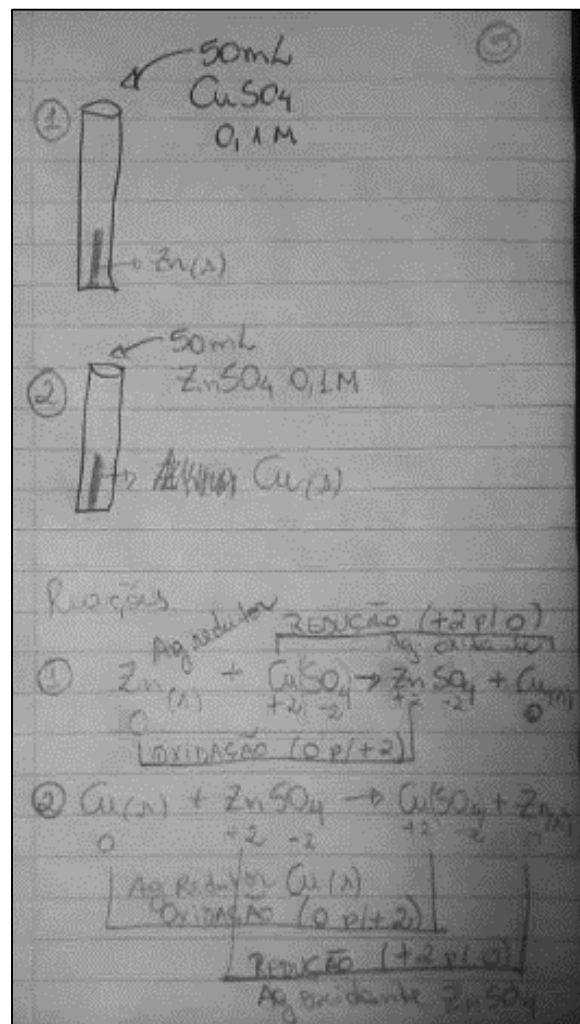 ③
50mL
CuSO4
0,1M
①
Zn(s)
50mL
ZnSO4 0,1M
②
Cu(s)
Reações
Ag redutor
REDUÇÃO (+2 p/ 0)
Ag. oxidante
① Zn(s) + CuSO4 → ZnSO4 + Cu(s)
0 +2 -2 +2 -2 0
OXIDAÇÃO (0 p/ +2)
② Cu(s) + ZnSO4 → CuSO4 + Zn(s)
0 +2 -2 +2 -2 0
Ag Redutor Cu(s)
OXIDAÇÃO (0 p/ +2)
REDUÇÃO (+2 p/ 0)
Ag oxidante ZnSO4